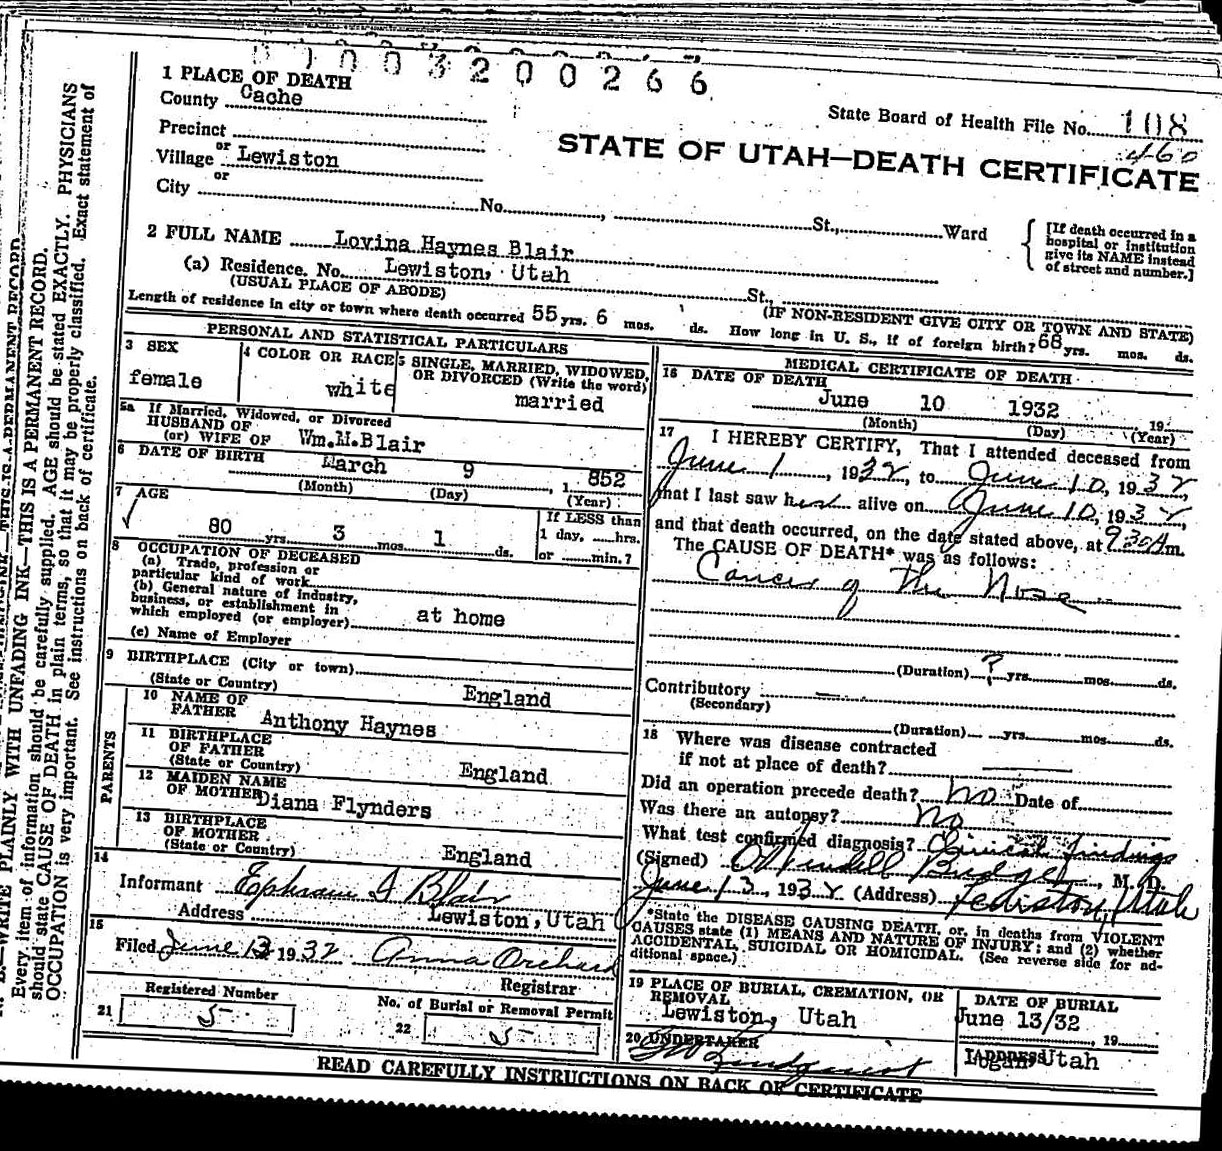 003200266
1 PLACE OF DEATH
County Cache
State Board of Health File No. 108
460
Precinct
or
Village Lewiston
or
STATE OF UTAH—DEATH CERTIFICATE
City No. , St., Ward
[If death occurred in a hospital or institution give its NAME instead of street and number.]
2 FULL NAME Lovina Haynes Blair
(a) Residence. No. Lewiston, Utah St.,
(USUAL PLACE OF ABODE) (IF NON-RESIDENT GIVE CITY OR TOWN AND STATE)
Length of residence in city or town where death occurred 55 yrs. 6 mos. ds. How long in U. S., if of foreign birth? 68 yrs. mos. ds.
PERSONAL AND STATISTICAL PARTICULARS
3 SEX
female
4 COLOR OR RACE
white
5 SINGLE, MARRIED, WIDOWED,
OR DIVORCED (Write the word)
married
5a If Married, Widowed, or Divorced
HUSBAND OF
(or) WIFE OF Wm.M.Blair
6 DATE OF BIRTH March 9 , 1 852
(Month) (Day) (Year)
7 AGE
80 yrs. 3 mos. 1 ds.
If LESS than
1 day, hrs.
or min.?
8 OCCUPATION OF DECEASED
(a) Trade, profession or
particular kind of work
(b) General nature of industry,
business, or establishment in
which employed (or employer) at home
(c) Name of Employer
9 BIRTHPLACE (City or town)
(State or Country) England
PARENTS
10 NAME OF
FATHER Anthony Haynes
11 BIRTHPLACE
OF FATHER
(State or Country) England
12 MAIDEN NAME
OF MOTHER Diana Flynders
13 BIRTHPLACE
OF MOTHER
(State or Country) England
14
Informant Ephraim I Blair
Address Lewiston, Utah
15
Filed June 13 1932 Anna Orchard
Registrar
21 Registered Number
5
22 No. of Burial or Removal Permit
5
MEDICAL CERTIFICATE OF DEATH
16 DATE OF DEATH
June 10 1932 19
(Month) (Day) (Year)
17 I HEREBY CERTIFY, That I attended deceased from
June 1 , 1932, to June 10, 1932,
that I last saw her alive on June 10, 1932,
and that death occurred, on the date stated above, at 9 30 A m.
The CAUSE OF DEATH* was as follows:
Cancer of the Nose
(Duration) ? yrs. mos. ds.
Contributory
(Secondary)
(Duration) yrs. mos. ds.
18 Where was disease contracted
if not at place of death?
Did an operation precede death? No Date of
Was there an autopsy? No
What test confirmed diagnosis? Clinical findings
(Signed) Budge , M. D.
June 13, 1932 (Address) Lewiston, Utah
*State the DISEASE CAUSING DEATH, or, in deaths from VIOLENT
CAUSES state (1) MEANS AND NATURE OF INJURY; and (2) whether
ACCIDENTAL, SUICIDAL OR HOMICIDAL. (See reverse side for ad-
ditional space.)
19 PLACE OF BURIAL, CREMATION, OR
REMOVAL
Lewiston, Utah
DATE OF BURIAL
June 13/32
, 19
20 UNDERTAKER
Lindquist
ADDRESS
Logan, Utah
READ CAREFULLY INSTRUCTIONS ON BACK OF CERTIFICATE
N. B.—WRITE PLAINLY WITH UNFADING INK—THIS IS A PERMANENT RECORD.
Every item of information should be carefully supplied. AGE should be stated EXACTLY. PHYSICIANS
should state CAUSE OF DEATH in plain terms, so that it may be properly classified. Exact statement of
OCCUPATION is very important. See instructions on back of certificate.